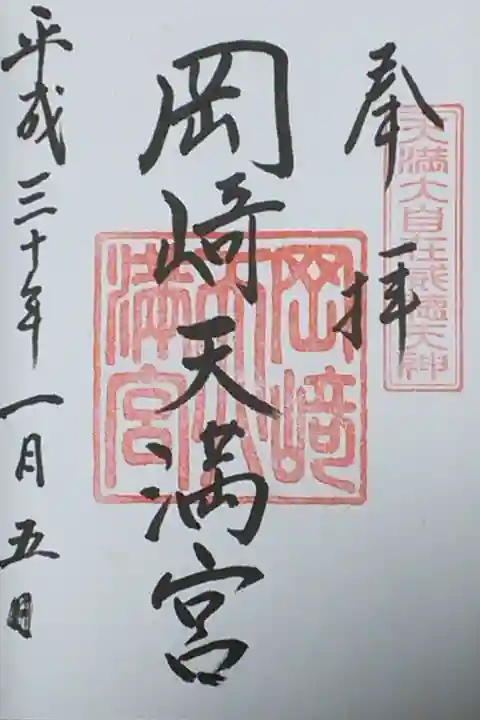 奉拝
天満大自在威徳天神
岡﨑天満宮
岡﨑天満宮
平成三十年一月五日